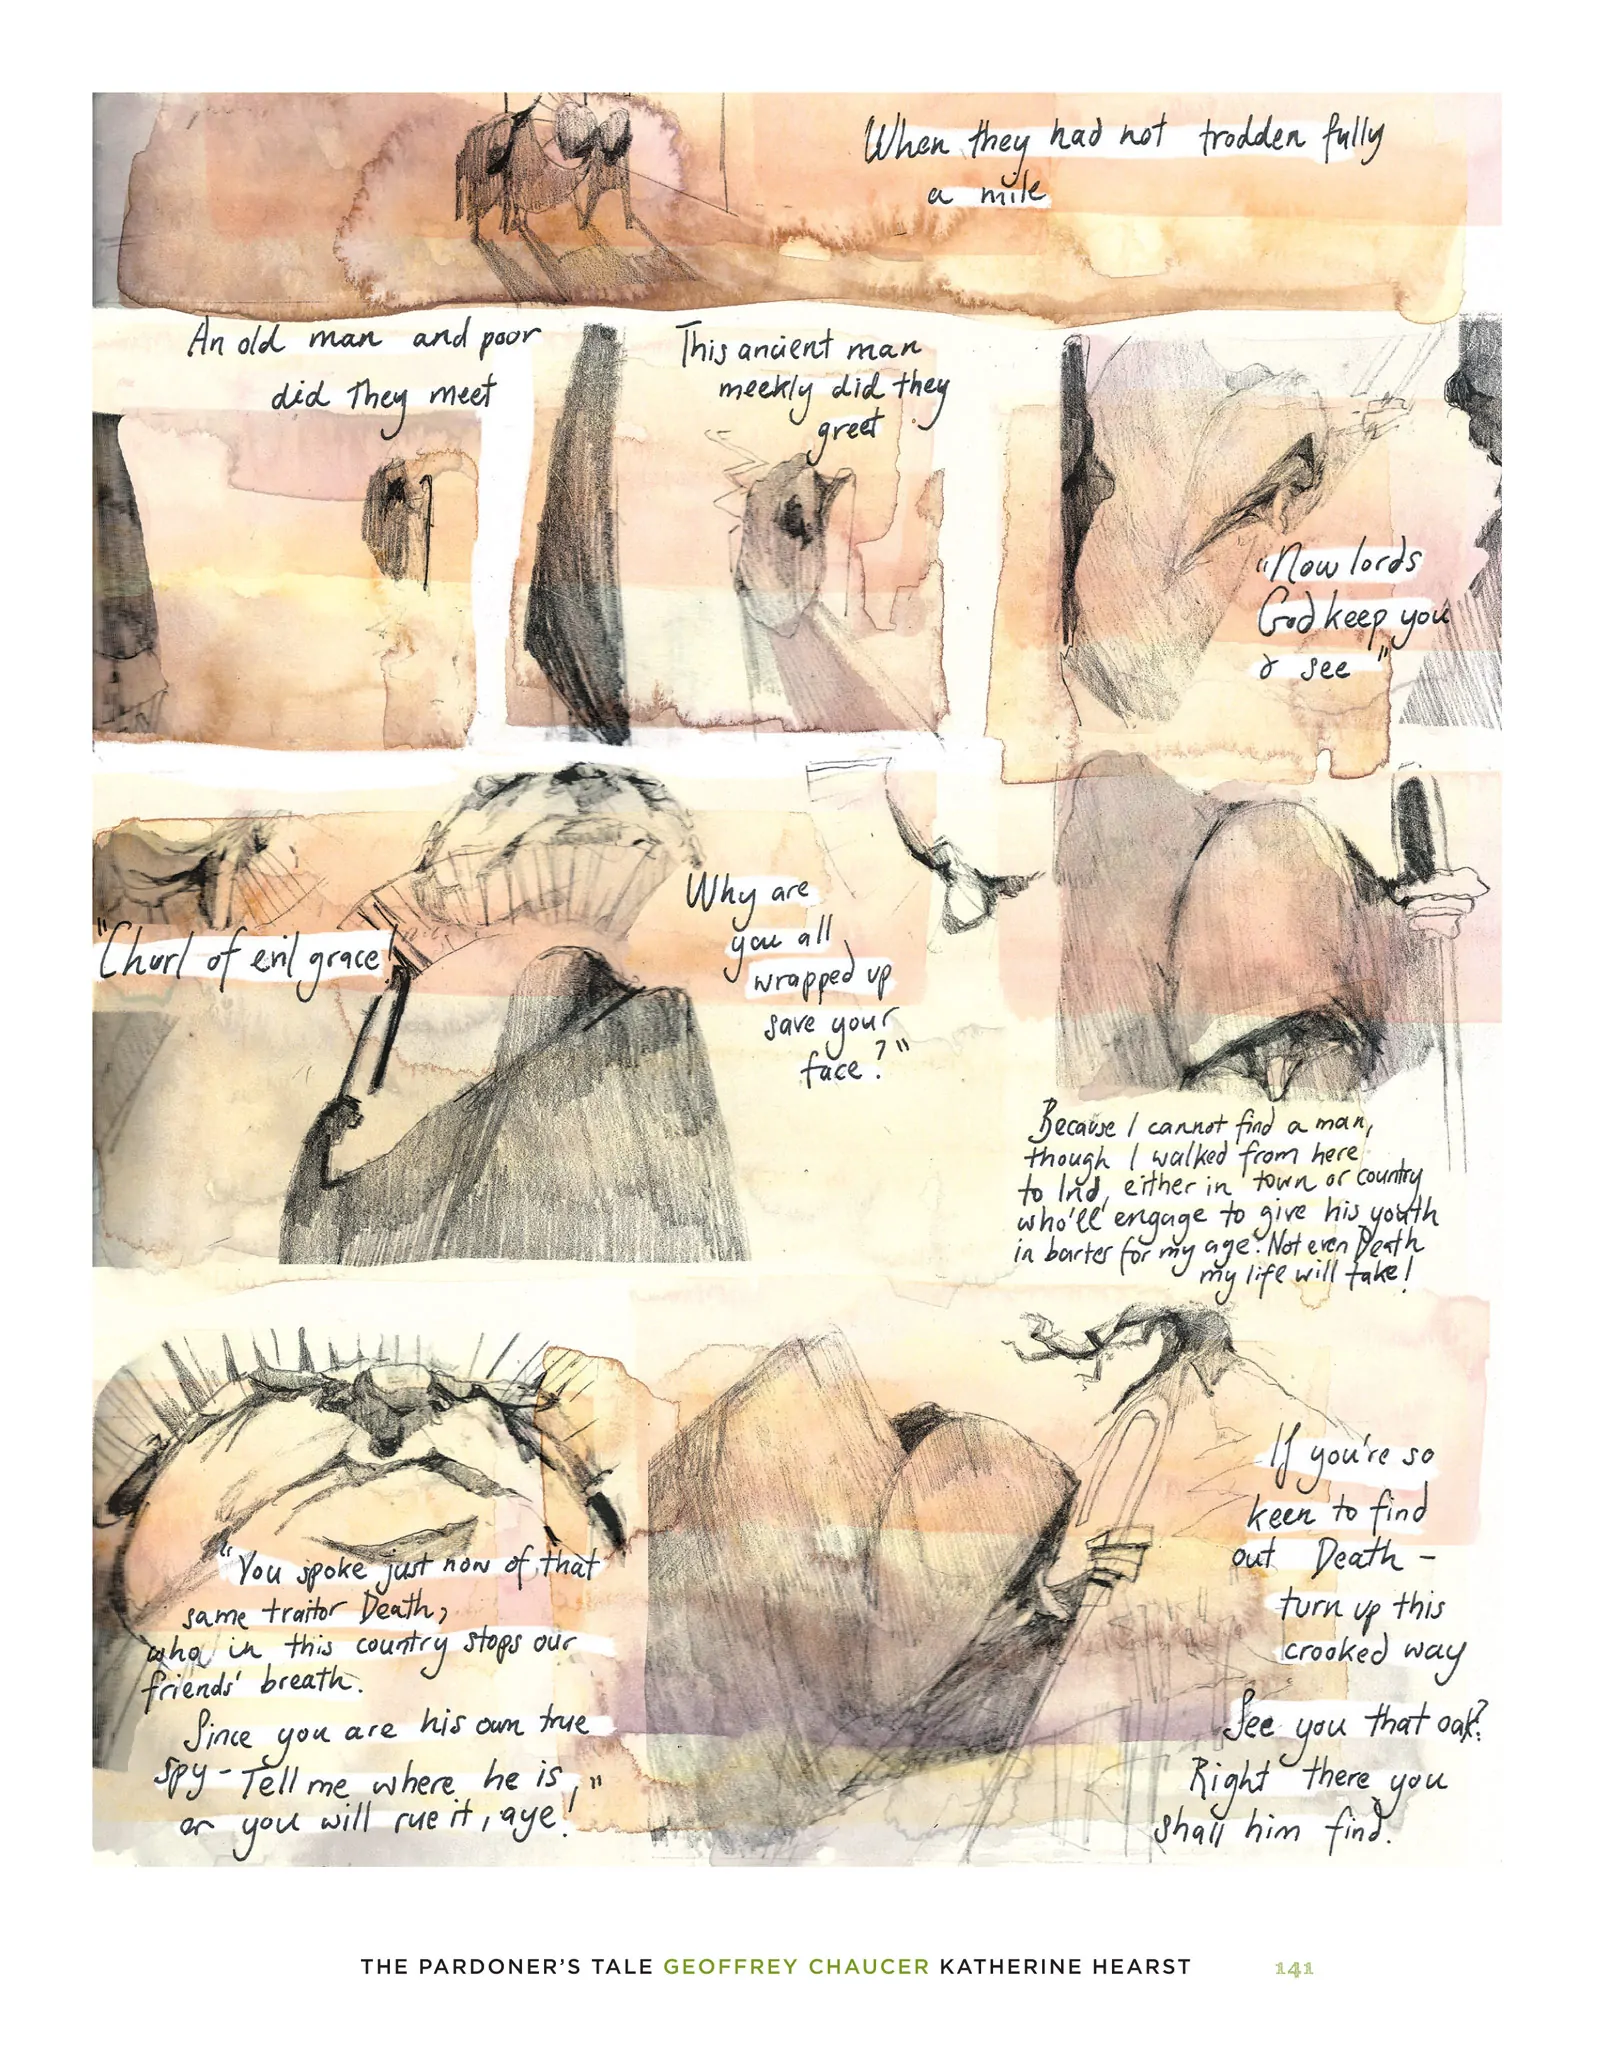 When they had not trodden fully
a mile
An old man and poor
did They meet
This ancient man
meekly did they
greet
"Now lords
God keep you
& see"
"Churl of evil grace!
Why are
you all
wrapped up
save your
face?"
Because I cannot find a man,
though I walked from here
to Ind, either in town or country
who'll engage to give his youth
in barter for my age. Not even Death
my life will take!
"You spoke just now of that
same traitor Death,
who in this country stops our
friends' breath.
Since you are his own true
spy - Tell me where he is,
or you will rue it, aye!"
If you're so
keen to find
out Death -
turn up this
crooked way
See you that oak?
Right there you
shall him find.
THE PARDONER'S TALE GEOFFREY CHAUCER KATHERINE HEARST 141